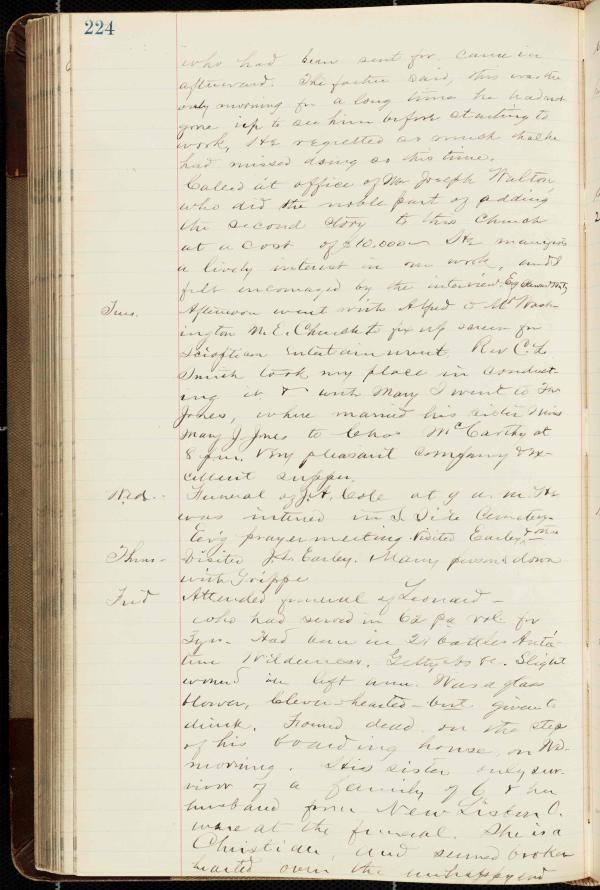 224
who had been sent for. came in
afterward. The father said, this was the
only morning for a long time he had not
gone up to see him before starting to
work, He regretted so much that he
had missed doing so this time.
Called at office of Mr Joseph Walton
who did the noble part of adding
the second story to this Church
at a cost of $10.000. He manifests
a lively interest in our work, and I
felt encouraged by the interview. Eg
Tues. Afternoon went with Alfred to Mt Wash-
ington M. E. Church to fix up screen for
Sciopticon Entertainment, Rev C. L.
Smith took my place in conduct-
ing it, & with Mary I went to Tho
Jones, where married his sister Miss
Mary J. Jones to Chas McCarthy at
8 p.m. Very pleasant company & ex-
cellent supper.
Wed. Funeral of J. A. Cole at 9 a. m He
was interred in S. Side Cemetery.
Ev'g prayer meeting. Visited Earley
Thurs - Visited J. L. Earley. Many persons down
with Grippe
Frid Attended funeral of Leonard -
who had served in 62 Pa Vol. for
3 yrs. Had been in 21 battles Antie
tam Wilderness, Gettysb &c. Slight
wound in left arm. Was a glass
blower, Clever-hearted - but given to
drink. Found dead on the step
of his boarding house, on Wd-
morning. His sister only sur-
vivor of a family of 6 & her
husband from New Lisbon O.
were at the funeral. She is a
Christian, and seemed broken
hearted over the unhappy end